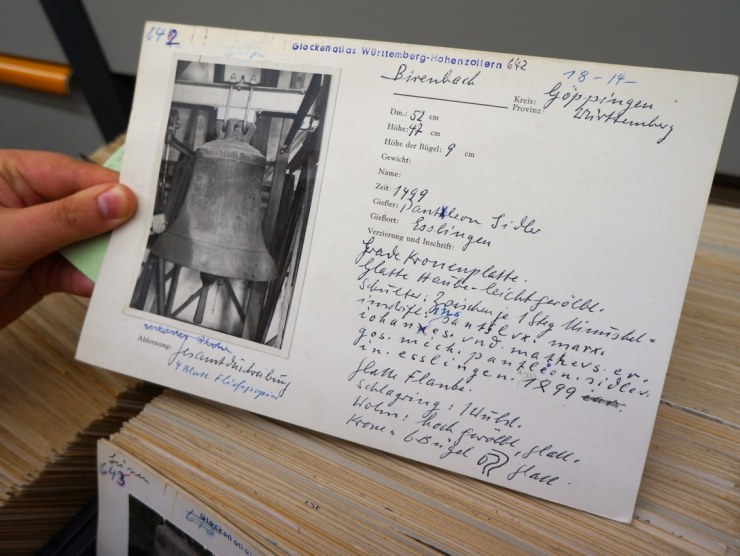 642
Glockenatlas Württemberg-Hohenzollern 642
18-14-
Birenbach
Kreis: Göppingen
Provinz: Württemberg
Dm.: 52 cm
Höhe: 47 cm
Höhe der Bügel: 9 cm
Gewicht:
Name:
Zeit: 1499
Gießer: Pantleon Sidler
Gießort: Esslingen
Verzierung und Inschrift:
Grade Kronenplatte.
Glatte Haube - leicht gewölbt.
Schulter: Zwischen je 1 Steg Minuskel=
inschrift:
iohannes. vnd matheus. er.
gos. mich. pantleon. sidler.
in. esslingen. 1499
glatte Flanke.
Schlagring: 1 Wulst.
Wolm: hoch gewölbt, glatt.
Krone = 6 Bügel glatt.
Abformung:
Gesamtbeschreibung
4 Blatt Fliesspapier
643
Glockenatlas